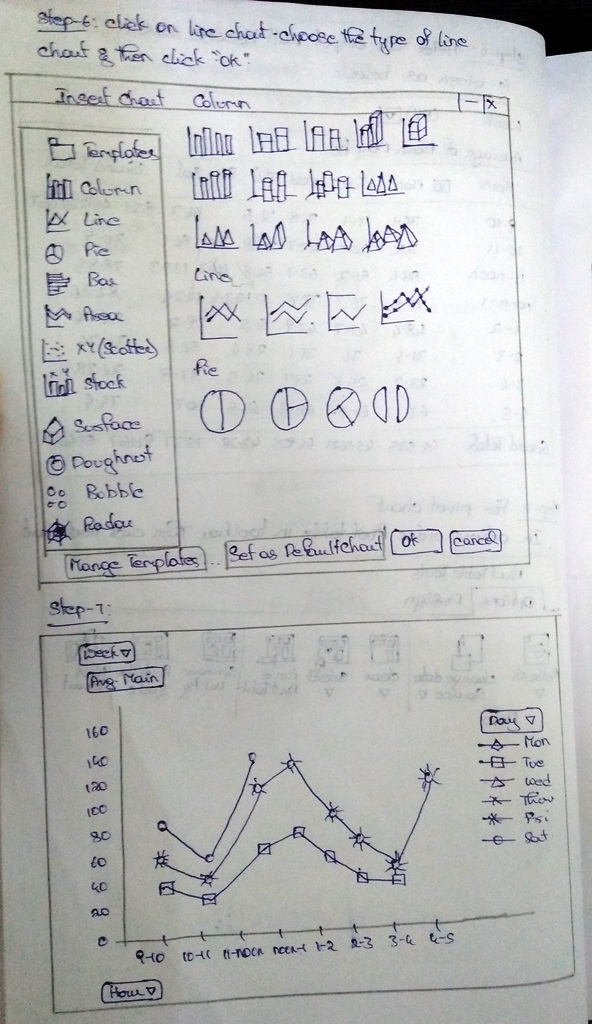 Step-6: click on line chart-choose the type of line
chart & then click "ok".
Insert chart Column - X
Templates
Column
Line
Pie
Bar
Area
XY (Scatter)
Stock
Surface
Doughnut
Bobble
Radar
Line
Pie
Mange Templates.. Set as Default chart Ok cancel
Step-7:
Week ▽
Avg. Main
Day ▽
Mon
Tue
Wed
Thur
Fri
Sat
160
140
120
100
80
60
40
20
0
9-10 10-11 11-noon noon-1 1-2 2-3 3-4 4-5
Hour ▽